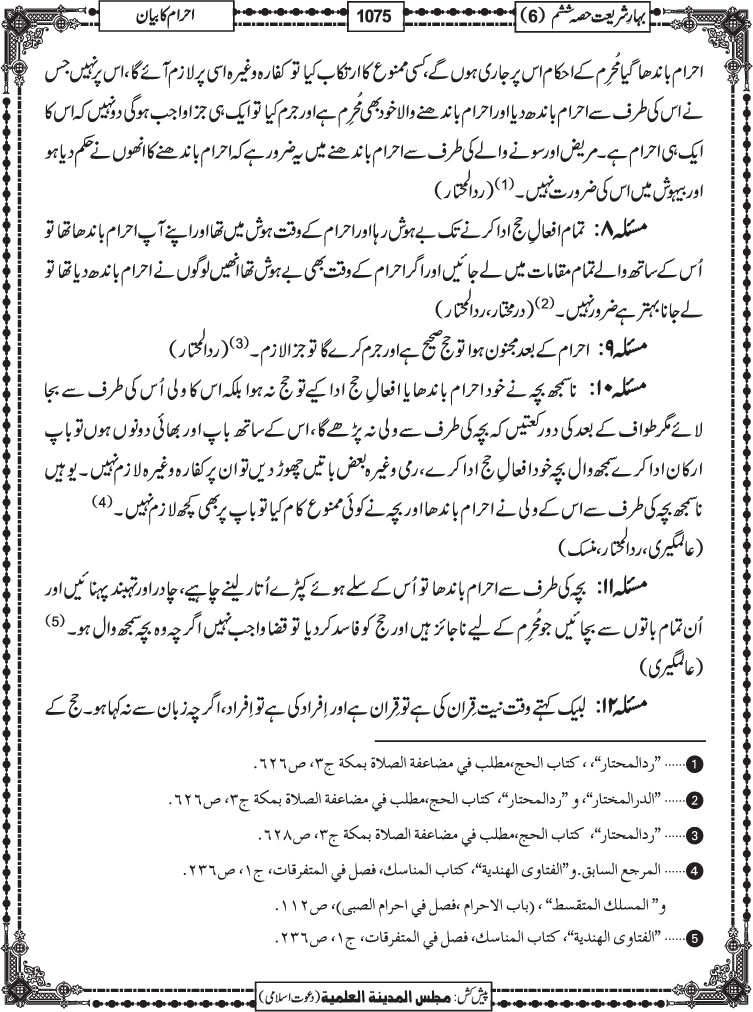 بہارِ شریعت حصہ ششم (6)
1075
احرام کا بیان
احرام باندھا گیا مُحرِم کے احکام اس پر جاری ہوں گے، کسی ممنوع کا ارتکاب کیا تو کفارہ وغیرہ اسی پر لازم آئے گا، اس پر نہیں جس
نے اس کی طرف سے احرام باندھ دیا اور احرام باندھنے والا خود بھی مُحرِم ہے اور جرم کیا تو ایک ہی جزا واجب ہوگی دو نہیں کہ اس کا
ایک ہی احرام ہے۔ مریض اور سونے والے کی طرف سے احرام باندھنے میں یہ ضرور ہے کہ احرام باندھنے کا انھوں نے حکم دیا ہو
اور بیہوش میں اس کی ضرورت نہیں۔ (1) (ردالمحتار)
مسئلہ ۸: تمام افعالِ حج ادا کرنے تک بے ہوش رہا اور احرام کے وقت ہوش میں تھا اور اپنے آپ احرام باندھا تھا تو
اُس کے ساتھ والے تمام مقامات میں لے جائیں اور اگر احرام کے وقت بھی بے ہوش تھا انھیں لوگوں نے احرام باندھ دیا تھا تو
لے جانا بہتر ہے ضرور نہیں۔ (2) (درمختار، ردالمحتار)
مسئلہ ۹: احرام کے بعد مجنون ہوا تو حج صحیح ہے اور جرم کرے گا تو جزا لازم۔ (3) (ردالمحتار)
مسئلہ ۱۰: ناسمجھ بچہ نے خود احرام باندھا یا افعالِ حج ادا کیے تو حج نہ ہوا بلکہ اس کا ولی اُس کی طرف سے بجا
لائے مگر طواف کے بعد کی دو رکعتیں کہ بچہ کی طرف سے ولی نہ پڑھے گا، اس کے ساتھ باپ اور بھائی دونوں ہوں تو باپ
ارکان ادا کرے سمجھ وال بچہ خود افعالِ حج ادا کرے، رمی وغیرہ بعض باتیں چھوڑ دیں تو ان پر کفارہ وغیرہ لازم نہیں۔ یوہیں
ناسمجھ بچہ کی طرف سے اس کے ولی نے احرام باندھا اور بچہ نے کوئی ممنوع کام کیا تو باپ پر بھی کچھ لازم نہیں۔ (4)
(عالمگیری، ردالمحتار، منسک)
مسئلہ ۱۱: بچہ کی طرف سے احرام باندھا تو اُس کے سلے ہوئے کپڑے اُتار لینے چاہیے، چادر اور تہبند پہنائیں اور
اُن تمام باتوں سے بچائیں جو مُحرِم کے لیے ناجائز ہیں اور حج کو فاسد کر دیا تو قضا واجب نہیں اگرچہ وہ بچہ سمجھ وال ہو۔ (5)
(عالمگیری)
مسئلہ ۱۲: لبیک کہتے وقت نیت قِران کی ہے تو قِران ہے اور اِفراد کی ہے تو اِفراد، اگرچہ زبان سے نہ کہا ہو۔ حج کے
1 ...... "ردالمحتار"، ، کتاب الحج،مطلب في مضاعفة الصلاة بمكة ج۳، ص۶۲۶.
2 ...... "الدرالمختار"، و "ردالمحتار"، کتاب الحج،مطلب في مضاعفة الصلاة بمكة ج۳، ص۶۲۶.
3 ...... "ردالمحتار"، کتاب الحج،مطلب في مضاعفة الصلاة بمكة ج۳، ص۶۲۸.
4 ...... المرجع السابق.و"الفتاوى الهندية"، كتاب المناسك، فصل في المتفرقات، ج۱، ص۲۳۶.
و" المسلك المتقسط" ، (باب الاحرام ،فصل في احرام الصبى)، ص۱۱۲.
5 ...... "الفتاوى الهندية"، كتاب المناسك، فصل في المتفرقات، ج۱، ص۲۳۶.
پیش کش: مجلس المدینة العلمیة (دعوت اسلامی)